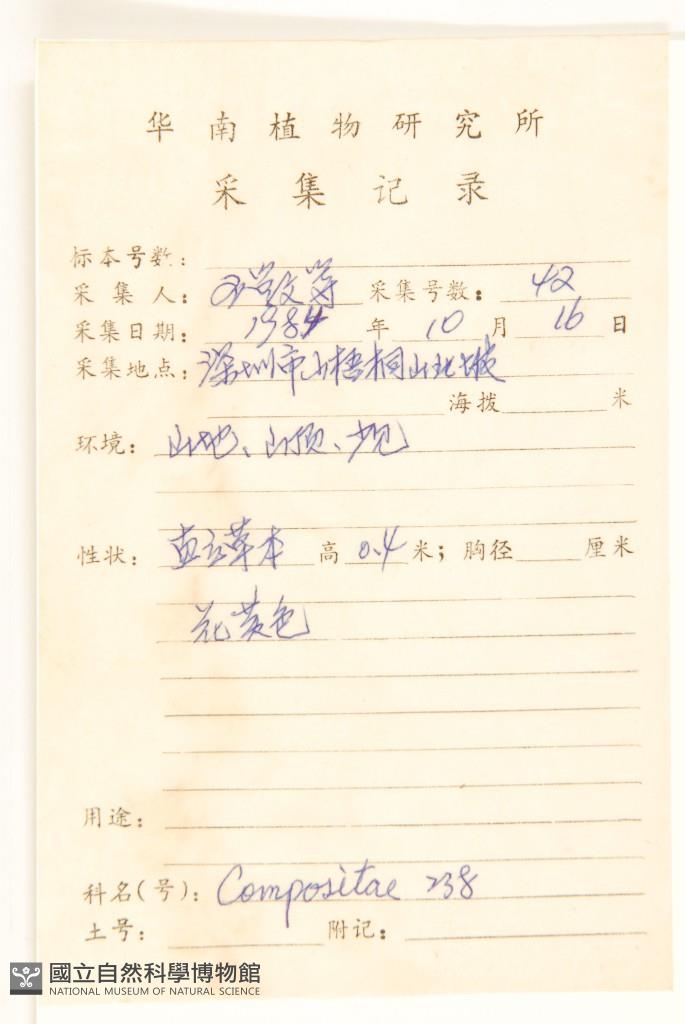 华南植物研究所
采集记录
标本号数：
采集人： 采集号数： 42
采集日期： 1984 年 10 月 16 日
采集地点： 深圳市小梧桐山北坡
海拨 米
环境： 山地、山顶、少见
性状： 直立草本 高 0.4 米；胸径 厘米
花黄色
用途：
科名(号)： Compositae 238
土号： 附记：
國立自然科學博物館
NATIONAL MUSEUM OF NATURAL SCIENCE